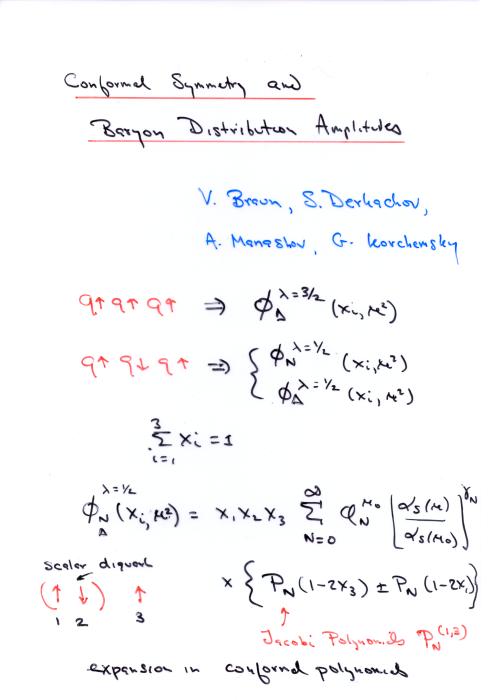 Conformal Symmetry and
Baryon Distribution Amplitudes
V. Braun, S. Derkachov,
A. Manashov, G. Korchemsky
q↑ q↑ q↑ ⇒ ϕ_Δ^{λ=3/2} (x_i, μ²)
q↑ q↓ q↑ ⇒ { ϕ_N^{λ=1/2} (x_i, μ²)
ϕ_Δ^{λ=1/2} (x_i, μ²)
∑_{i=1}^{3} x_i = 1
ϕ_{N Δ}^{λ=1/2} (x_i, μ²) = x_1 x_2 x_3 ∑_{N=0}^{∞} φ_N^{μ_0} [α_s(μ)/α_s(μ_0)]^{γ_N}
scalar diquark
(↑ ↓) ↑ × { P_N (1-2x_3) ± P_N (1-2x_1) }
1 2 3
Jacobi Polynomials P_N^{(1,3)}
expansion in conformal polynomials